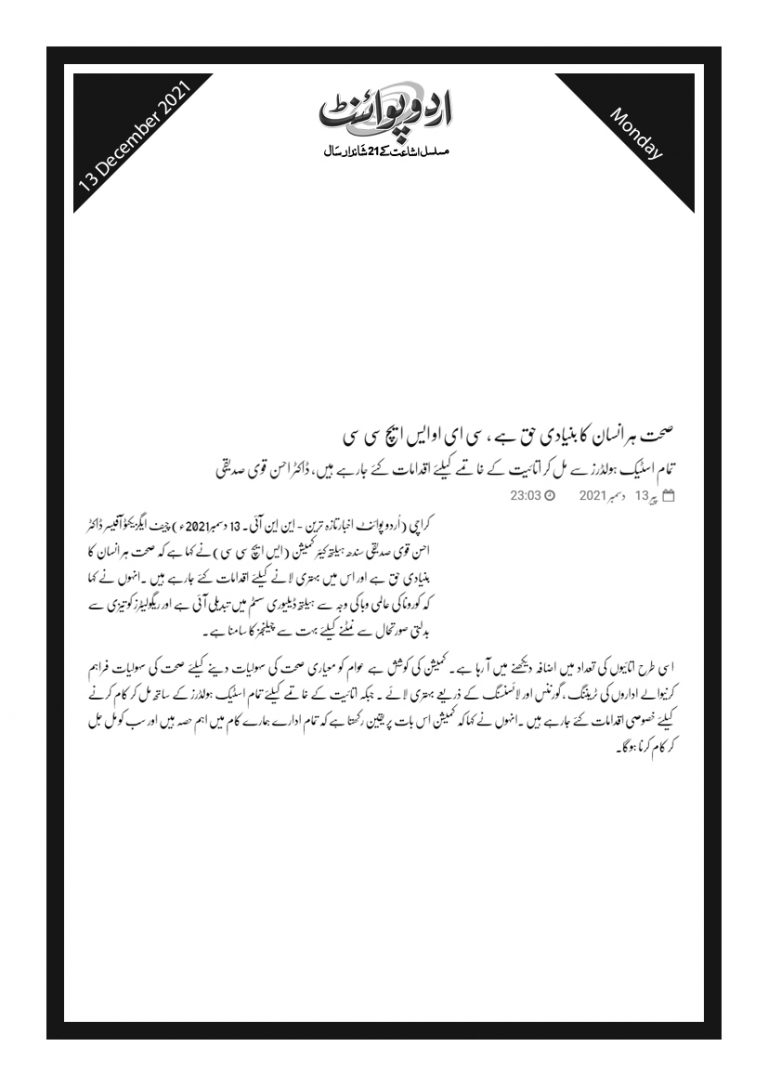 13 December 2021
اردوپوائنٹ
مسلسل اشاعت کے 21 شاندار سال
Monday
صحت ہر انسان کا بنیادی حق ہے ، سی ای او ایس ایچ سی سی
تمام اسٹیک ہولڈرز سے مل کر اتائیت کے خاتمے کیلئے اقدامات کئے جارہے ہیں، ڈاکٹر احسن قوی صدیقی
پیر 13 دسمبر 2021 23:03
کراچی (اُردو پوائنٹ اخبارتازہ ترین - این این آئی۔ 13 دسمبر2021ء) چیف ایگزیکٹو آفیسر ڈاکٹر
احسن قوی صدیقی سندھ ہیلتھ کیئر کمیشن (ایس ایچ سی سی) نے کہا ہے کہ صحت ہر انسان کا
بنیادی حق ہے اور اس میں بہتری لانے کیلئے اقدامات کئے جارہے ہیں ۔انہوں نے کہا
کہ کورونا کی عالمی وبا کی وجہ سے ہیلتھ ڈیلیوری سسٹم میں تبدیلی آئی ہے اور ریگولیٹرز کو تیزی سے
بدلتی صورتحال سے نمٹنے کیلئے بہت سے چیلنجز کا سامنا ہے ۔
اسی طرح اتائیوں کی تعداد میں اضافہ دیکھنے میں آ رہا ہے۔ کمیشن کی کوشش ہے عوام کو معیاری صحت کی سہولیات دینے کیلئے صحت کی سہولیات فراہم
کرنیوالے اداروں کی ٹریننگ ، گورننس اور لائسنسنگ کے ذریعے بہتری لائے ۔ جبکہ اتائیت کے خاتمے کیلئے تمام اسٹیک ہولڈرز کے ساتھ مل کر کام کرنے
کیلئے خصوصی اقدامات کئے جارہے ہیں ۔انہوں نے کہا کہ کمیشن اس بات پر یقین رکھتا ہے کہ تمام ادارے ہمارے کام میں اہم حصہ ہیں اور سب کو مل جل
کر کام کرنا ہوگا۔